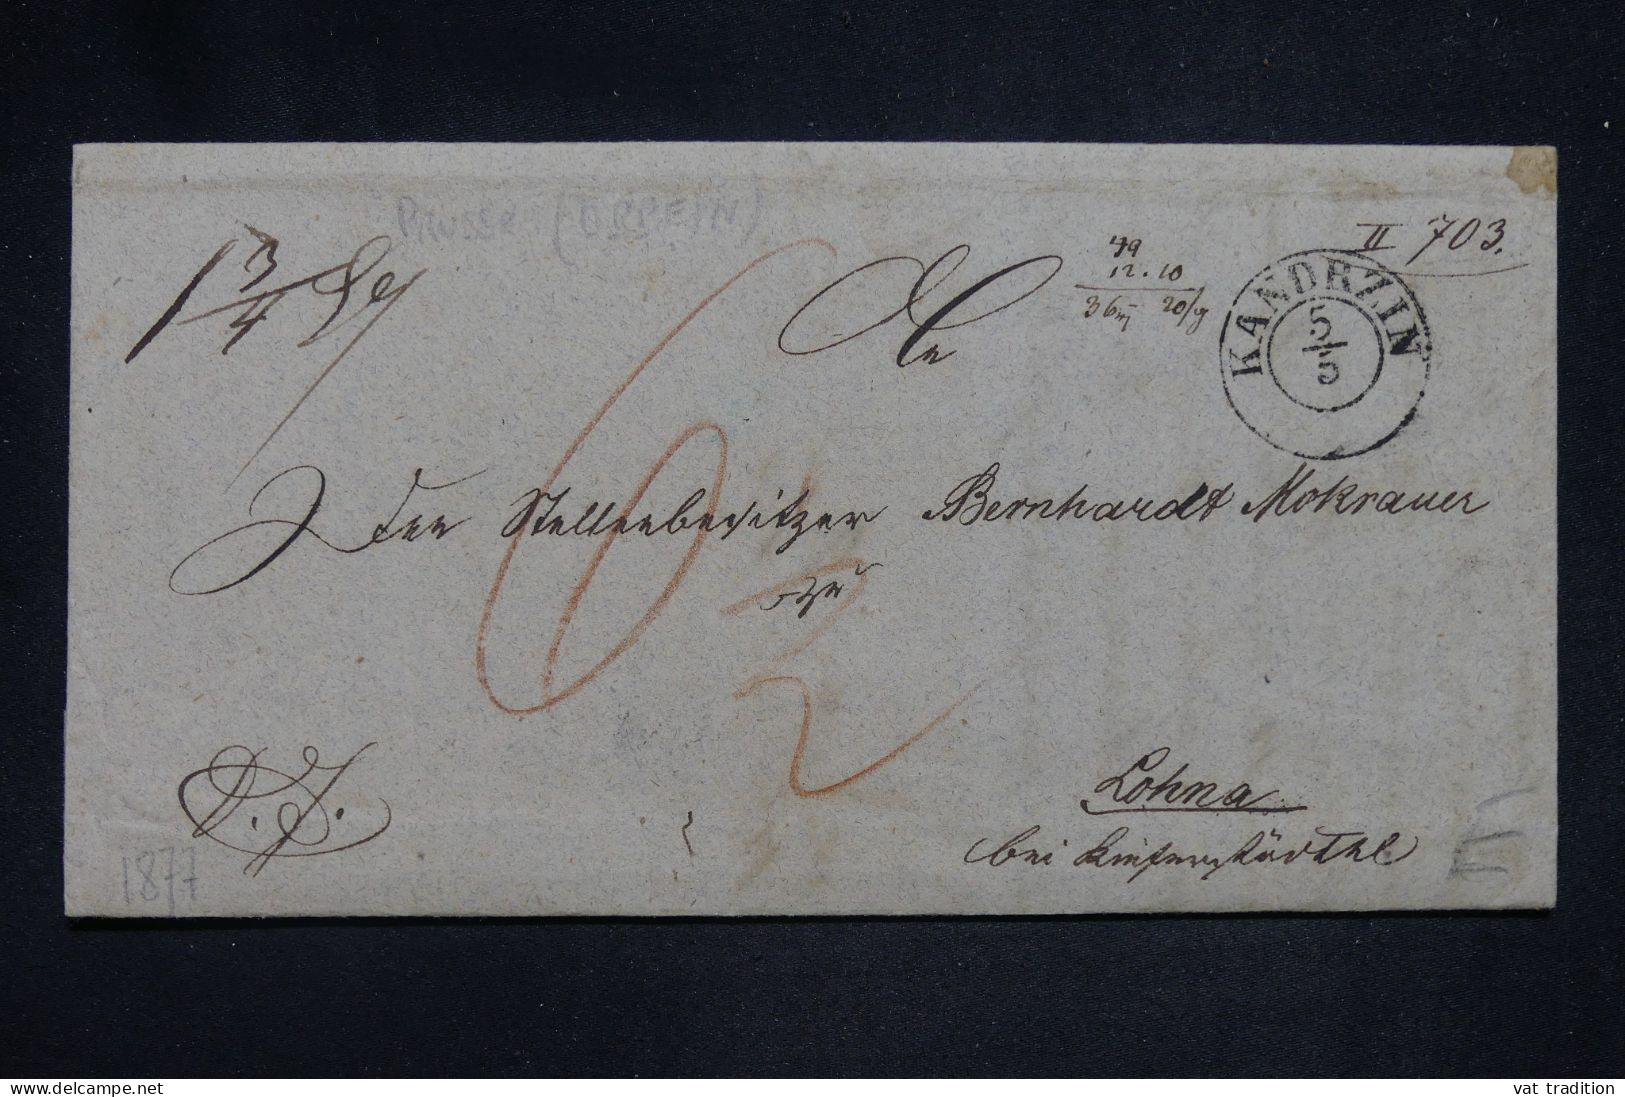 PRUSSE (OPPELN)
1 3/4
An
49
12.10
36 20/9
II 703.
KANDRZIN
5/5
6
den Stellenbesitzer Bernhardt Mokrauer
zu
2
Lohna
bei Kieferstädtel
D. S.
1877
www.delcampe.net
vat tradition